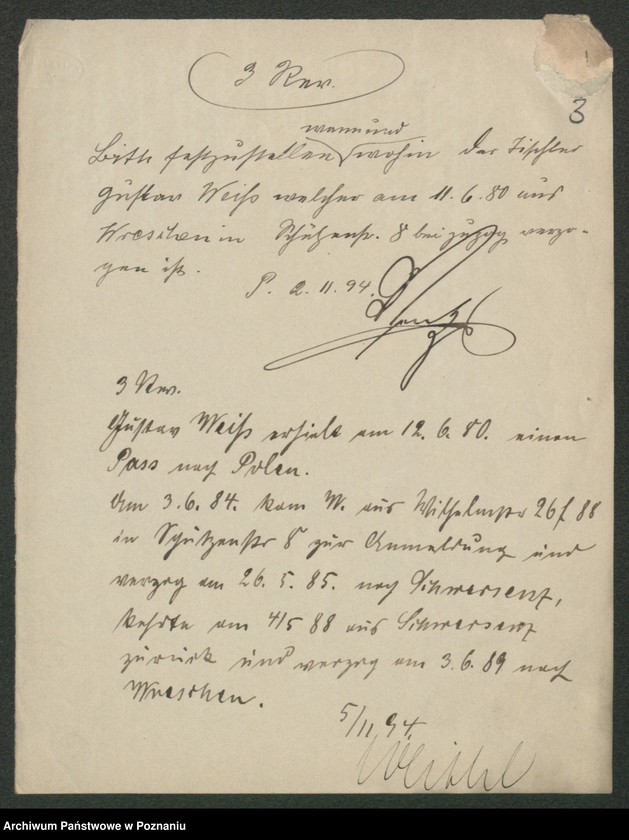 3 Rev.
3
wann und
Bitte festzustellen wohin der Tischler
Gustav Weiß welcher am 11.6.80 aus
Wreschen in Schützenstr. 8 bei zuzog verzo-
gen ist.
P. 2.11.94.
3 Rev.
Gustav Weiß erhielt am 12.6.80. einen
Pass nach Polen.
Am 3.6.84. kam W. aus Wilhelmstr 26
in Schützenstr 8 zur Anmeldung und
verzog am 26.5.85. nach Schwersenz,
kehrte am 4/5 88 aus Schwersenz
zurück und verzog am 3.6.89 nach
Wreschen.
5/11.94.
Archiwum Państwowe w Poznaniu